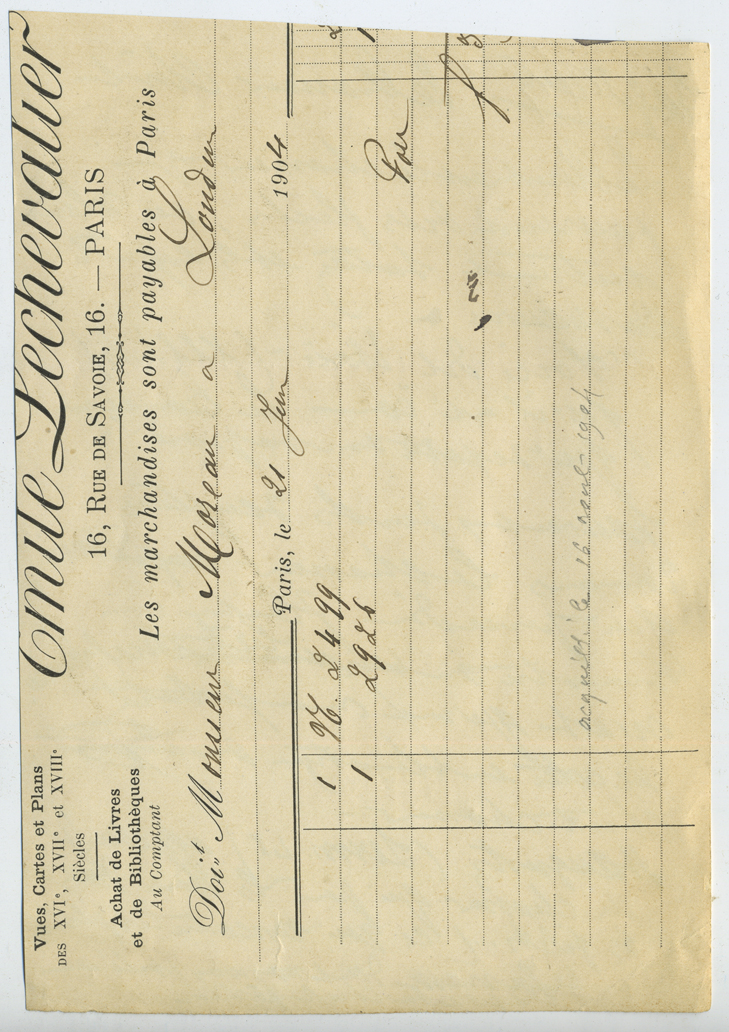 Vues, Cartes et Plans
DES XVIᵉ, XVIIᵉ et XVIIIᵉ
Siècles
Achat de Livres
et de Bibliothèques
Au Comptant
Emile Lechevalier
16, RUE DE SAVOIE, 16. — PARIS
Les marchandises sont payables à Paris
Doit Monsieur Moreau a Loudun
Paris, le 21 Juin 1904
1 N. 2499
1 2926
acquitté le 16 aout 1904